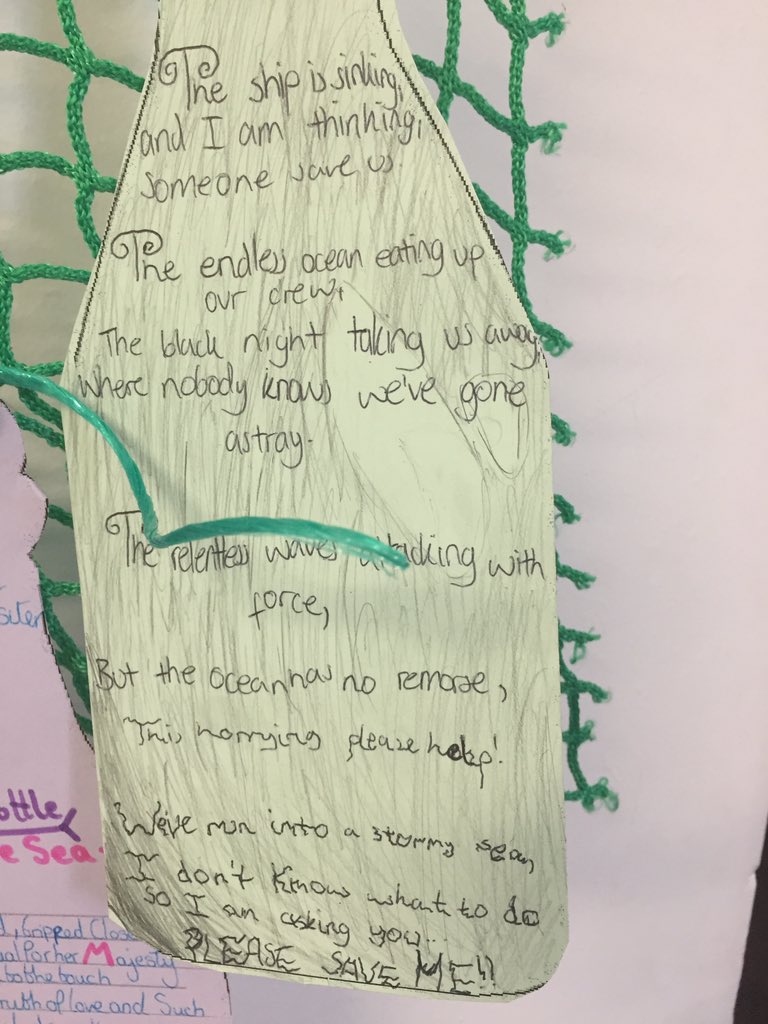 The ship is sinking,
and I am thinking,
someone save us.
The endless ocean eating up
our crew,
The black night taking us away,
where nobody knows we've gone
astray.
The relentless waves attacking with
force,
But the ocean has no remorse,
This horrying please help!
We've run into a stormy sea,
I don't know what to do
So I am asking you...
PLEASE SAVE ME!!
ottle
e Sea
d, Gripped Clos
Majesty
to the touch
ruth of love and Such